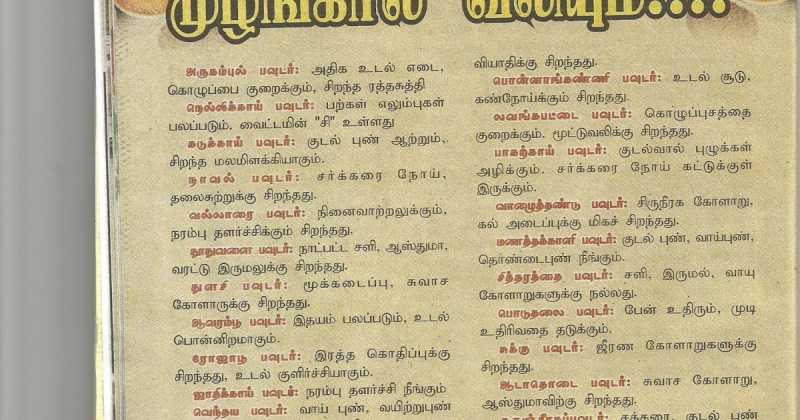 முழங்கால் வலியும்....
அருகம்புல் பவுடர்: அதிக உடல் எடை,
கொழுப்பை குறைக்கும், சிறந்த ரத்தசுத்தி
நெல்லிக்காய் பவுடர்: பற்கள் எலும்புகள்
பலப்படும், வைட்டமின் "சி" உள்ளது
கடுக்காய் பவுடர்: குடல் புண் ஆற்றும்,.
சிறந்த மலமிளக்கியாகும்.
நாவல் பவுடர்: சர்க்கரை நோய்,
தலைசுற்றுக்கு சிறந்தது.
வல்லாரை பவுடர்: நினைவாற்றலுக்கும்,
நரம்பு தளர்ச்சிக்கும் சிறந்தது.
தூதுவளை பவுடர்: நாட்பட்ட சளி, ஆஸ்துமா,
வரட்டு இருமலுக்கு சிறந்தது.
துளசி பவுடர்: மூக்கடைப்பு, சுவாச
கோளாருக்கு சிறந்தது.
ஆவரம்பூ பவுடர்: இதயம் பலப்படும், உடல்
பொன்னிறமாகும்.
ரோஜாபூ பவுடர்: இரத்த கொதிப்புக்கு
சிறந்தது, உடல் குளிர்ச்சியாகும்.
ஜாதிக்காய் பவுடர்: நரம்பு தளர்ச்சி நீங்கும்
வெந்தய பவுடர்: வாய் புண், வயிற்றுபுண்
வியாதிக்கு சிறந்தது.
பொன்னாங்கண்ணி பவுடர்: உடல் சூடு,
கண்நோய்க்கும் சிறந்தது.
லவங்கபட்டை பவுடர்: கொழுப்புசத்தை
குறைக்கும். மூட்டுவலிக்கு சிறந்தது.
பாகற்காய் பவுடர்: குடல்வால் புழுக்கள்
அழிக்கும், சர்க்கரை நோய் கட்டுக்குள்
இருக்கும்.
வாழைத்தண்டு பவுடர்: சிருநீரக கோளாறு,
கல் அடைப்புக்கு மிகச் சிறந்தது.
மணத்தக்காளி பவுடர்: குடல் புண், வாய்புண்,
தொண்டைபுண் நீங்கும்.
சித்தரத்தை பவுடர்: சளி, இருமல், வாயு
கோளாறுகளுக்கு நல்லது.
பொடுதலை பவுடர்: பேன் உதிரும், முடி
உதிரிவதை தடுக்கும்.
சுக்கு பவுடர்: ஜீரண கோளாறுகளுக்கு
சிறந்தது.
ஆடாதொடை பவுடர்: சுவாச கோளாறு,
ஆஸ்துமாவிற்கு சிறந்தது.
சக்கரை, குடல் புண்